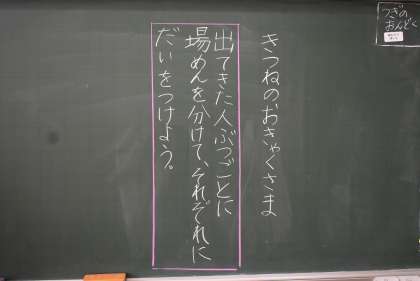 つぎの
おんどく
きつねのおきゃくさま
出てきた人ぶつごとに
場めんを分けて、それぞれに
だいをつけよう。